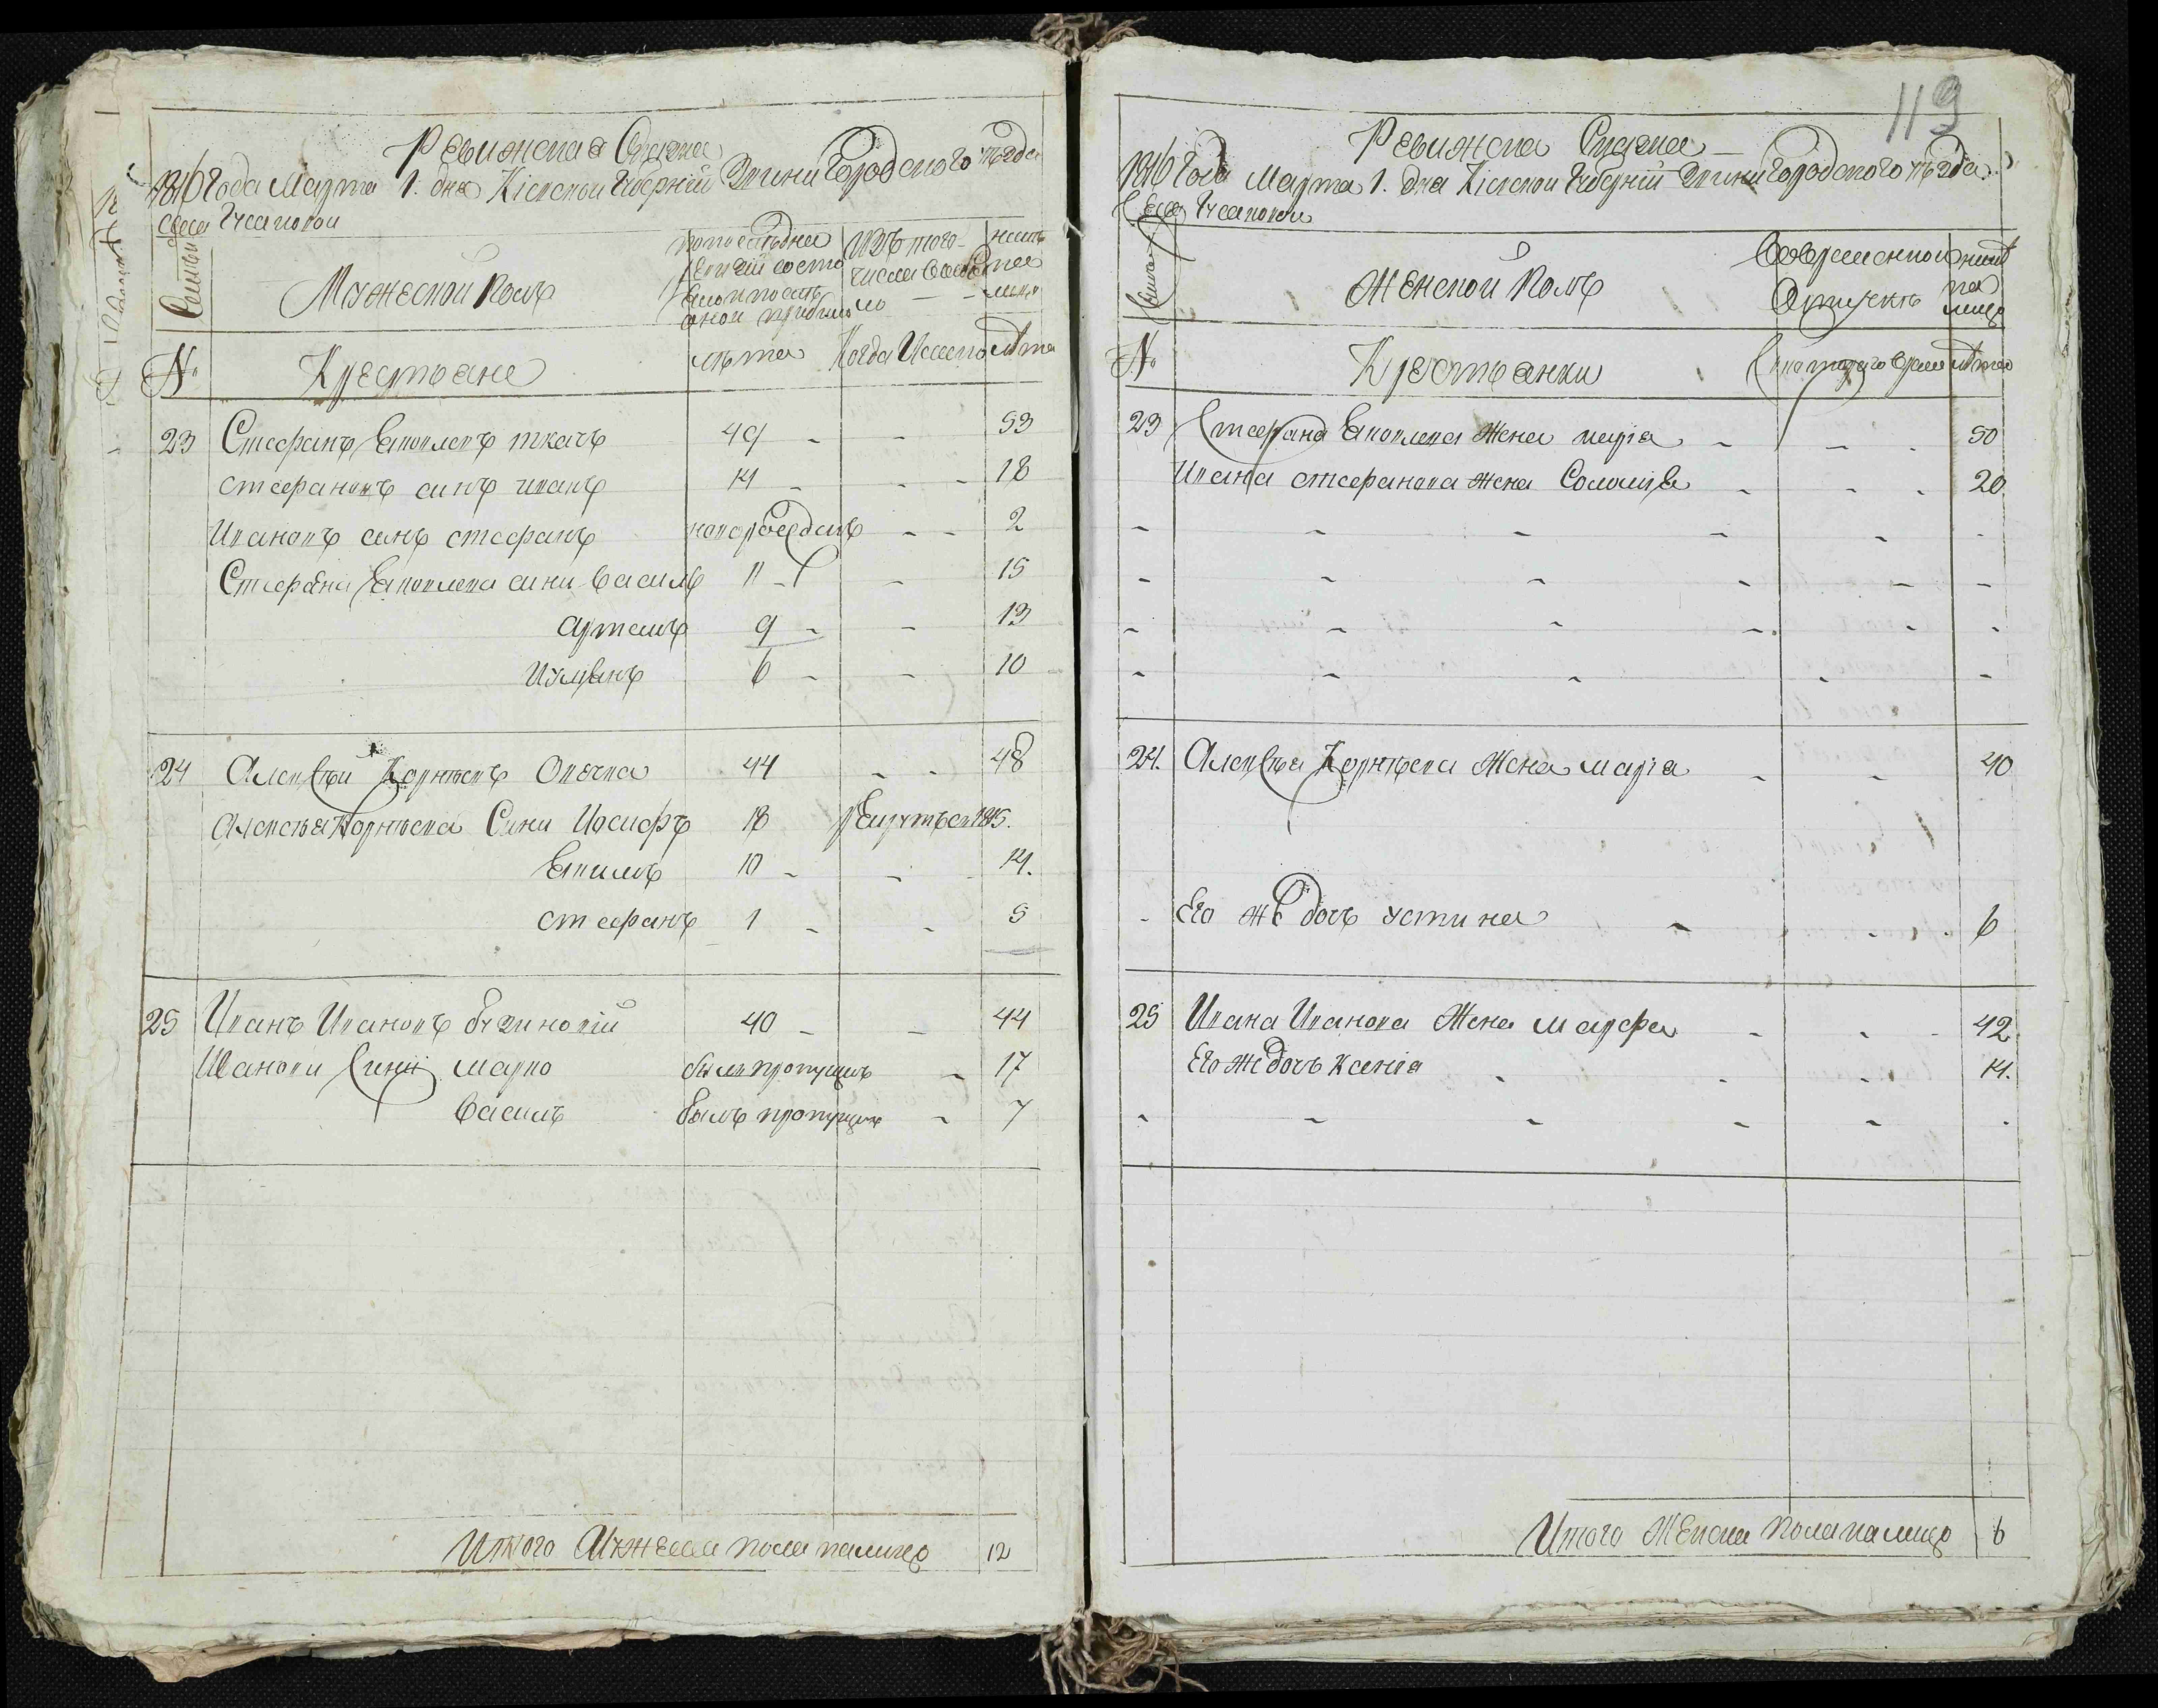 Ревижская Сказка
1816 Года Марта 1. дня Кіевской Губерніи Звенигородского уезда
Села Гусаковой
Семьи
Мужеской Полъ
По последней
ревизіи состо
яло и после
оной прибыло
Изъ того
числа выбы
ло
ныне
на
лицо
№
Крестьяне
лета
Когда Именно
лета
23 Стефанъ Яковлевъ ткачъ 49 - - 53
Стефановъ синъ иванъ 14 - - 18
Ивановъ синъ стефанъ новорожденъ - - 2
Стефана Яковлева сини василь 11 - - 15
Артемъ 9 - - 13
Иулианъ 6 - - 10
24 Алексѣй Корнѣевъ Овечка 44 - - 48
Алексѣя Корнѣева Сини Иосифъ 18 рекрутъ въ 1815.
Екимъ 10 - - 14.
стефанъ 1 - - 5
25 Иванъ Ивановъ бузиновій 40 - - 44
Иванови Сини марко былъ пропущенъ - 17
Василь былъ пропущенъ - 7
Итого Мужеска пола налицо 12
119
Ревижска Сказка
1816 Года Марта 1. дня Кіевской Губерніи Звенигородского уезда
Села Гусаковой
Семьи
Женской Полъ
Во временной
Отлучке
ныне
на
лицо
№
Крестьянки
С которого времени
лета
23 Стефана Яковлева Жена марія - - 50
Ивана стефанова жена Соломія - - 20
24. Алексѣя Корнѣева Жена марія - - 40
- Его же дочь устина - - 6
25 Ивана Иванова Жена Марфа - - 42
Его же дочь Ксенія - - 14.
Итого Женска пола налицо 6